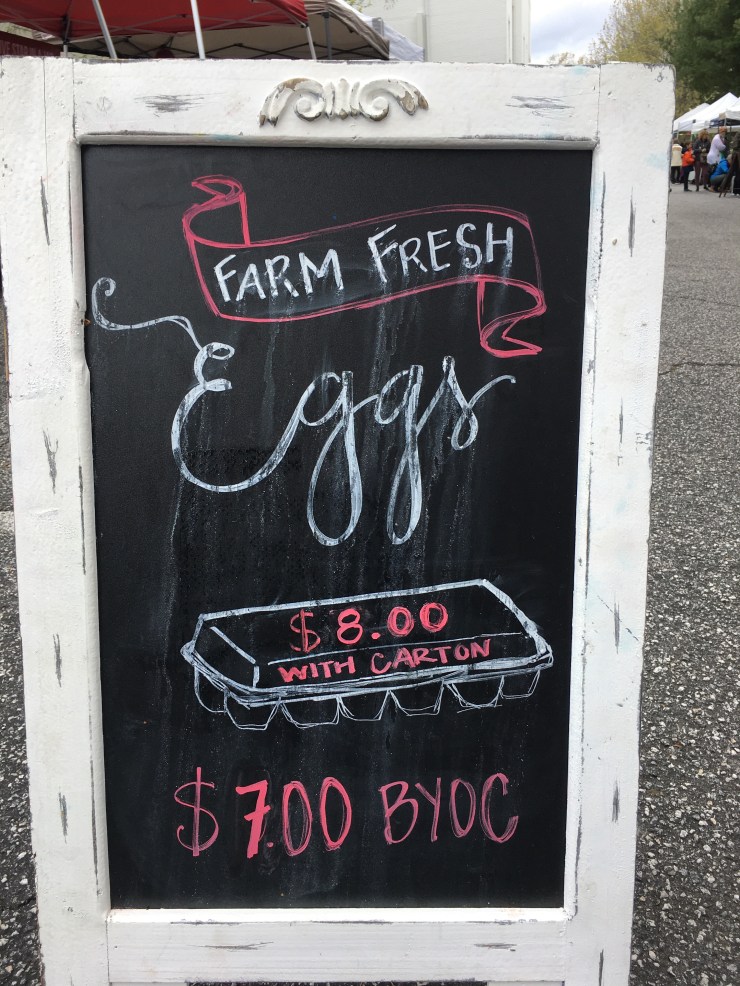 FARM FRESH
Eggs
$8.00
WITH CARTON
$7.00 BYOC